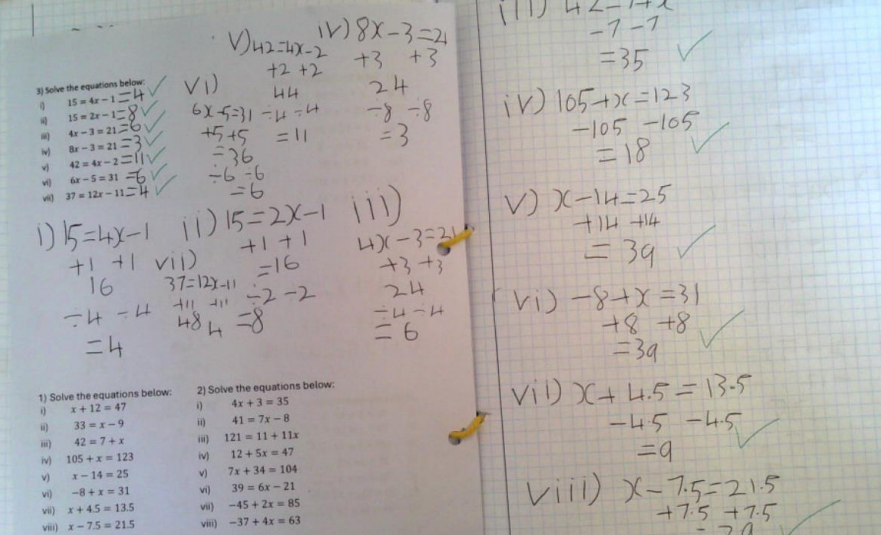 3) Solve the equations below:
i) 15 = 4x − 1 = 4 ✓
ii) 15 = 2x − 1 = 8 ✓
iii) 4x − 3 = 21 = 6 ✓
iv) 8x − 3 = 21 = 3 ✓
v) 42 = 4x − 2 = 11 ✓
vi) 6x − 5 = 31 = 6 ✓
vii) 37 = 12x − 11 = 4 ✓
v) 42=4x-2
+2 +2
44
÷4 ÷4
=11
iv) 8x-3=21
+3 +3
24
÷8 ÷8
=3
vi)
6x-5=31
+5 +5
=36
÷6 ÷6
=6
i) 15=4x-1
+1 +1
16
÷4 ÷4
=4
vii)
37=12x-11
+11 +11
48
4
ii) 15=2x-1
+1 +1
=16
÷2 ÷2
=8
iii)
4x-3=21
+3 +3
24
÷4 ÷4
= 6
1) Solve the equations below:
i) x + 12 = 47
ii) 33 = x − 9
iii) 42 = 7 + x
iv) 105 + x = 123
v) x − 14 = 25
vi) −8 + x = 31
vii) x + 4.5 = 13.5
viii) x − 7.5 = 21.5
2) Solve the equations below:
i) 4x + 3 = 35
ii) 41 = 7x − 8
iii) 121 = 11 + 11x
iv) 12 + 5x = 47
v) 7x + 34 = 104
vi) 39 = 6x − 21
vii) −45 + 2x = 85
viii) −37 + 4x = 63
iii) 42=7+x
-7 -7
=35 ✓
iv) 105+x=123
-105 -105
=18 ✓
v) x-14=25
+14 +14
= 39 ✓
vi) -8+x=31
+8 +8
=39 ✓
vii) x+4.5=13.5
-4.5 -4.5
=9 ✓
viii) x-7.5=21.5
+7.5 +7.5